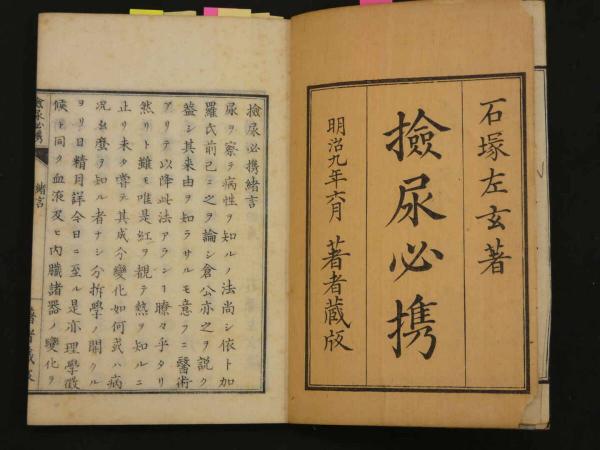 石塚左玄著
撿尿必携
明治九年六月　著者蔵版
撿尿必携緒言
尿ヲ察ラ病性ヲ知ルノ法尚シ依ト加
羅氏前己ニ之ヲ論シ倉公亦之ヲ説ク
蓋シ其来由ヲ知ラサルモ意フニ醫術
アリテ以降此法アラシ瞭々乎タリ
然リト雖モ唯是紅ヲ観テ熱ヲ知ルニ
止リ未タ嘗テ其成分變化如何或ハ病
況 麼ヲ知ル者ナシ分拆學ノ開クル
ヨリ日精月詳今日ニ至ル是亦理學激
候ト同ク血液及ヒ内臓諸器ノ變化ヲ
撿尿必携
緒言
著者蔵